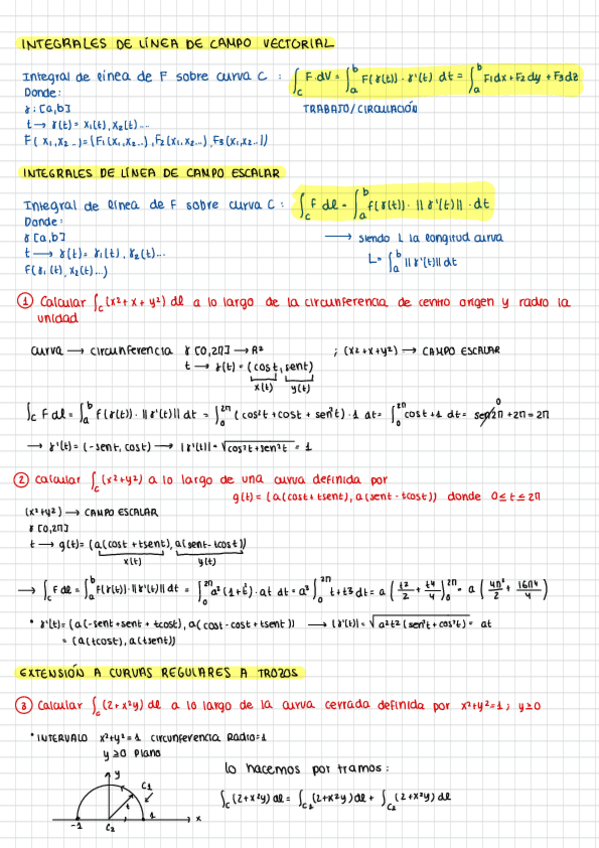 INTEGRALES DE LÍNEA DE CAMPO VECTORIAL
Integral de línea de F sobre curva C : ∫_C F dV = ∫_a^b F(γ(t)) · γ'(t) dt = ∫_a^b F₁dx + F₂dy + F₃dz
Donde:
γ: [a,b] TRABAJO/CIRCULACIÓN
t → γ(t) = x₁(t), x₂(t)...
F( x₁, x₂ ..) = (F₁(x₁, x₂...), F₂(x₁, x₂...), F₃(x₁, x₂..))
INTEGRALES DE LÍNEA DE CAMPO ESCALAR
Integral de línea de F sobre curva C : ∫_C F dl = ∫_a^b f(γ(t)) · ||γ'(t)|| · dt
Donde:
γ [a,b] → siendo L la longitud curva
t → γ(t) = γ₁(t), γ₂(t)... L = ∫_a^b ||γ'(t)|| dt
F(γ₁(t), x₂(t)...)
① Calcular ∫_C (x²+x+y²) dl a lo largo de la circunferencia de centro origen y radio la
unidad
curva → circunferencia γ [0,2π] → R² ; (x²+x+y²) → CAMPO ESCALAR
t → γ(t) = (cost, sent)
x(t) y(t)
∫_C F dl = ∫_a^b f(γ(t)) · ||γ'(t)|| dt = ∫_0^2π (cos²t + cost + sen²t) · 1 dt = ∫_0^2π cost + 1 dt = sen2π + 2π = 2π
0
→ γ'(t) = (-sent, cost) → |γ'(t)| = √cos²t + sen²t = 1
② Calcular ∫_C (x²+y²) a lo largo de una curva definida por
g(t) = (a(cost + tsent), a(sent - tcost)) donde 0≤t≤2π
(x²+y²) → CAMPO ESCALAR
γ [0,2π]
t → g(t) = (a(cost + tsent), a(sent - tcost))
x(t) y(t)
→ ∫_C F dl = ∫_a^b F(γ(t)) · ||γ'(t)|| dt = ∫_0^2π a²(1+t²) · at dt = a³ ∫_0^2π t + t³ dt = a (t²/2 + t⁴/4)_0^2π = a (4π²/2 + 16π⁴/4)
• γ'(t) = (a(-sent + sent + tcost), a(cost - cost + tsent)) → |γ'(t)| = √a²t²(sen²t + cos²t) = at
= (a(tcost), a(tsent))
EXTENSIÓN A CURVAS REGULARES A TROZOS
③ Calcular ∫_C (2+x²y) dl a lo largo de la curva cerrada definida por x²+y²=1 ; y≥0
• INTERVALO x²+y²=1 circunferencia Radio=1
y≥0 plano
lo hacemos por tramos:
y
C₁
∫_C (2+x²y) dl = ∫_C₁ (2+x²y) dl + ∫_C₂ (2+x²y) dl
t
-1 C₂ 1 x